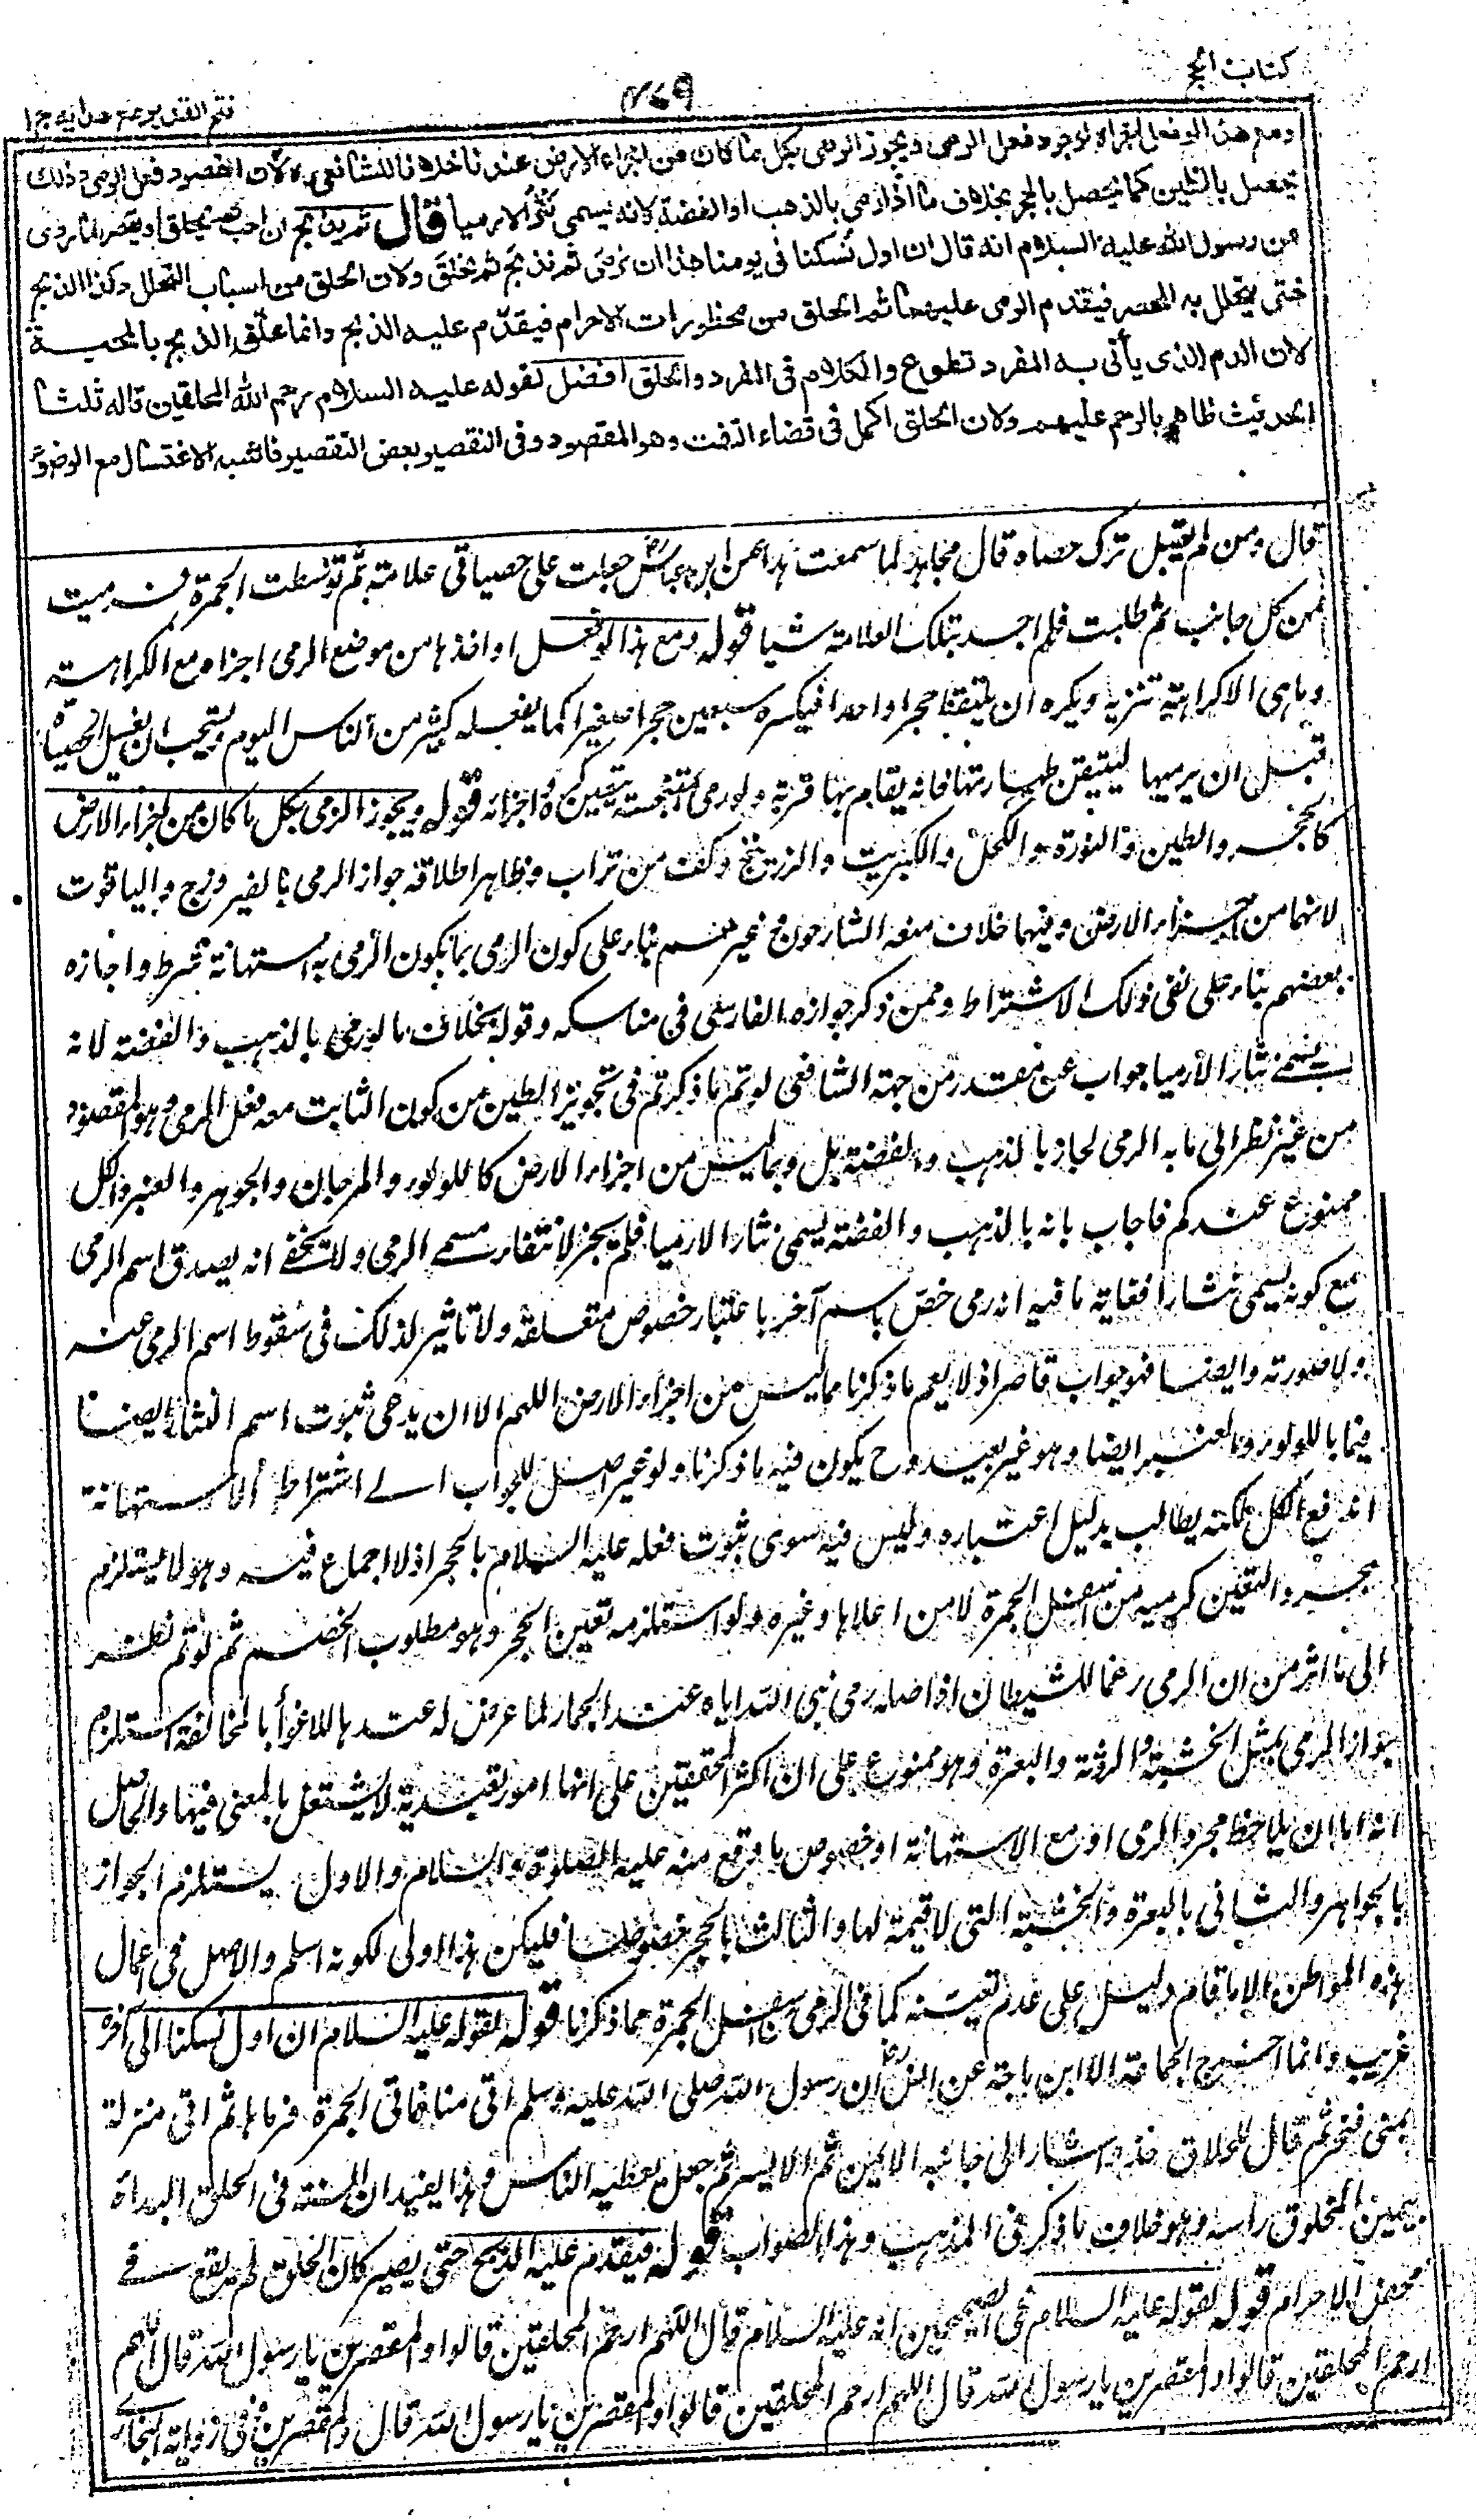 كتاب الحج
٤٦٩
فتح القدير مع هدايه ج ١
ومع هذا لو فعل اجزاه لوجود فعل الرمى ويجوز الرمى بكل ما كان من اجزاء الارض عندنا خلافا للشافعى لان المقصود فعل الرمى وذلك
يحصل بالطين كما يحصل بالحجر بخلاف ما اذا رمى بالذهب او الفضة لانه يسمى نثرا لا رميا قال ثم يذبح ان احب ثم يحلق او يقصر لما روى
عن رسول الله عليه السلام انه قال ان اول نسكنا فى يومنا هذا ان نرمى ثم نذبح ثم نحلق ولان الحلق من اسباب التحلل وكذا الذبح
حتى يتحلل به المحصر فيقدم الرمى عليهما ثم الحلق من محظورات الاحرام فيقدم عليه الذبح وانما علق الذبح بالمحبة
لان الدم الذى يأتى به المفرد تطوع والكلام فى المفرد والحلق افضل لقوله عليه السلام رحم الله المحلقين قاله ثلثا
الحديث ظاهر بالرحم عليهم ولان الحلق اكمل فى قضاء التفث وهو المقصود وفى التقصير بعض التقصير فاشبه الاغتسال مع الوضوء
قال ومن لم يقبل ترك حصاه قال مجاهد لما سمعت هذا من ابن عباس رض جعلت على حصياتى علامة ثم توسطت الجمرة فرميت
من كل جانب ثم طلبت فلم اجد بتلك العلامة شيا قوله ومع هذا لو فعل او اخذها من موضع الرمى اجزاه مع الكراهة
وما هى الا كراهية تنزيه ويكره ان يلتقط حجرا واحدا فيكسره سبعين حجرا صغيرا كما يفعله كثير من الناس اليوم ويستحب ان يغسل الحصيات
قبل ان يرميها ليتيقن طهارتها فانه يقام بها قربة ولو رمى بمتنجسة بيقين كره واجزأه قوله ويجوز الرمى بكل ما كان من اجزاء الارض
كالحجر والطين والنورة والكحل والكبريت والزرنيخ وكف من تراب وظاهر اطلاقه جواز الرمى بالفيروزج والياقوت
لانهما من اجزاء الارض وفيهما خلاف منعه الشارحون وغيرهم بناء على كون الرمى بما يكون الرمى به استهانة شرط واجازه
بعضهم بناء على نفى ذلك الاشتراط وممن ذكر جوازه الفارسى فى مناسكه وقوله بخلاف ما لو رمى بالذهب والفضة لانه
يسمى نثارا لا رميا جواب عن مقدر من جهة الشافعى لو تم ما ذكرتم فى تجويز الطين من كون الثابت معه فعل الرمى وهو المقصود
من غير نظر الى ما به الرمى لجاز بالذهب والفضة بل وبما ليس من اجزاء الارض كاللولو والمرجان والجوهر والعنبر والكل
ممنوع عندكم فاجاب بانه بالذهب والفضة يسمى نثارا لا رميا فلم يجز لانتفاء مسمى الرمى ولا يخفى انه يصدق اسم الرمى
مع كونه يسمى نثارا فغاية ما فيه انه رمى خص باسم آخر باعتبار خصوص متعلقه ولا تاثير لذلك فى سقوط اسم الرمى عنه
ولا صورته وايضا فهو جواب قاصر اذ لا يعم ما ذكرنا مما ليس من اجزاء الارض اللهم الا ان يدعى ثبوت اسم النثار ايضا
فيما باللولو والعنبر ايضا وهو غير بعيد وح يكون فيه ما ذكرنا ولو غير اصل الجواب الى اشتراط الاستهانة
اندفع الكل لكنه يطالب بدليل اعتباره وليس فيه سوى ثبوت فعله عليه السلام بالحجر اذ لا اجماع فيه وهو لا يستلزم
بمجرده التعين كرميه من اسفل الجمرة لا من اعلاها وغيره ولو استلزمه تعين الحجر وهو مطلوب الخصم ثم لو تم نظر
الى ما اثر من ان الرمى رغما للشيطان اذ اصله رمى نبى الله اياه عند الجمار لما عرض له عندها للاغوأ بالمخالفة استلزم
جواز الرمى بمثل الخشبة والروثة والبعرة وهو ممنوع على ان اكثر المحققين على انها امور تعبدية لا يشتغل بالمعنى فيها والحاصل
انه اما ان يلاحظ مجرد الرمى او مع الاستهانة او خصوص ما وقع منه عليه الصلوة والسلام والاول يستلزم الجواز
بالجواهر والثانى بالبعرة والخشبة التى لا قيمة لها والثالث بالحجر خصوصا فليكن هذا اولى لكونه اسلم والاصل فى اعمال
هذه المواطن الا ما قام دليل على عدم تعينه كما فى الرمى من اسفل الجمرة مما ذكرنا قوله لقوله عليه السلام ان اول نسكنا الى آخره
غريب وانما اخرج الجماعة الا ابن ماجة عن انس رض ان رسول الله صلى الله عليه وسلم اتى منا فاتى الجمرة فرماها ثم اتى منزله
بمنى فنحر ثم قال للحلاق خذ واشار الى جانبه الايمن ثم الايسر ثم جعل يعطيه الناس وهذا يفيد ان السنة فى الحلق البداة
بيمين المحلوق راسه وهو خلاف ما ذكر فى المذهب وهذا الصواب قوله فيقدم عليه الذبح حتى يصير كان الحلق لم يقع فى
محض الاحرام قوله لقوله عليه السلام فى الصحيحين انه عليه السلام قال اللهم ارحم المحلقين قالوا والمقصرين يا رسول الله قال اللهم
ارحم المحلقين قالوا والمقصرين يا رسول الله قال اللهم ارحم المحلقين قالوا والمقصرين يا رسول الله قال والمقصرين وفى رواية البخارى